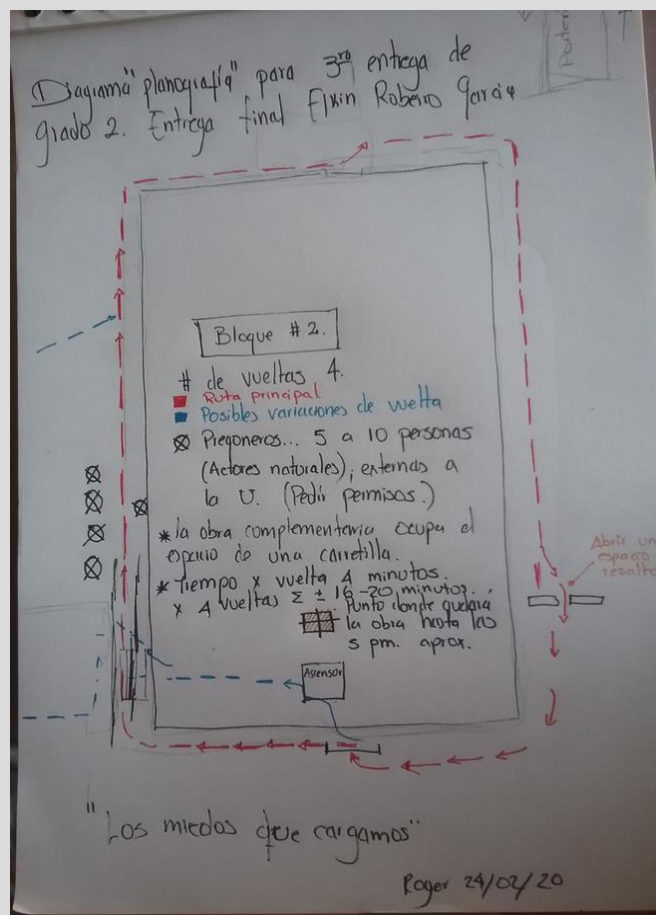 Diagrama "planografía" para 3ra entrega de
grado 2. Entrega final Elkin Robeiro Garcia
Bloque # 2.
# de vueltas 4.
Ruta principal
Posibles variaciones de vuelta
Pregoneros... 5 a 10 personas
(Actores naturales), externas a
la U. (Pedir permisos.)
* la obra complementaria ocupa el
espacio de una carretilla.
* Tiempo x vuelta 4 minutos.
x 4 vueltas Σ ± 16-20 minutos.
Punto donde quedará
la obra hasta las
5 pm. aprox.
Abrir un
espacio
Ascensor
"Los miedos que cargamos"
Roger 24/02/20